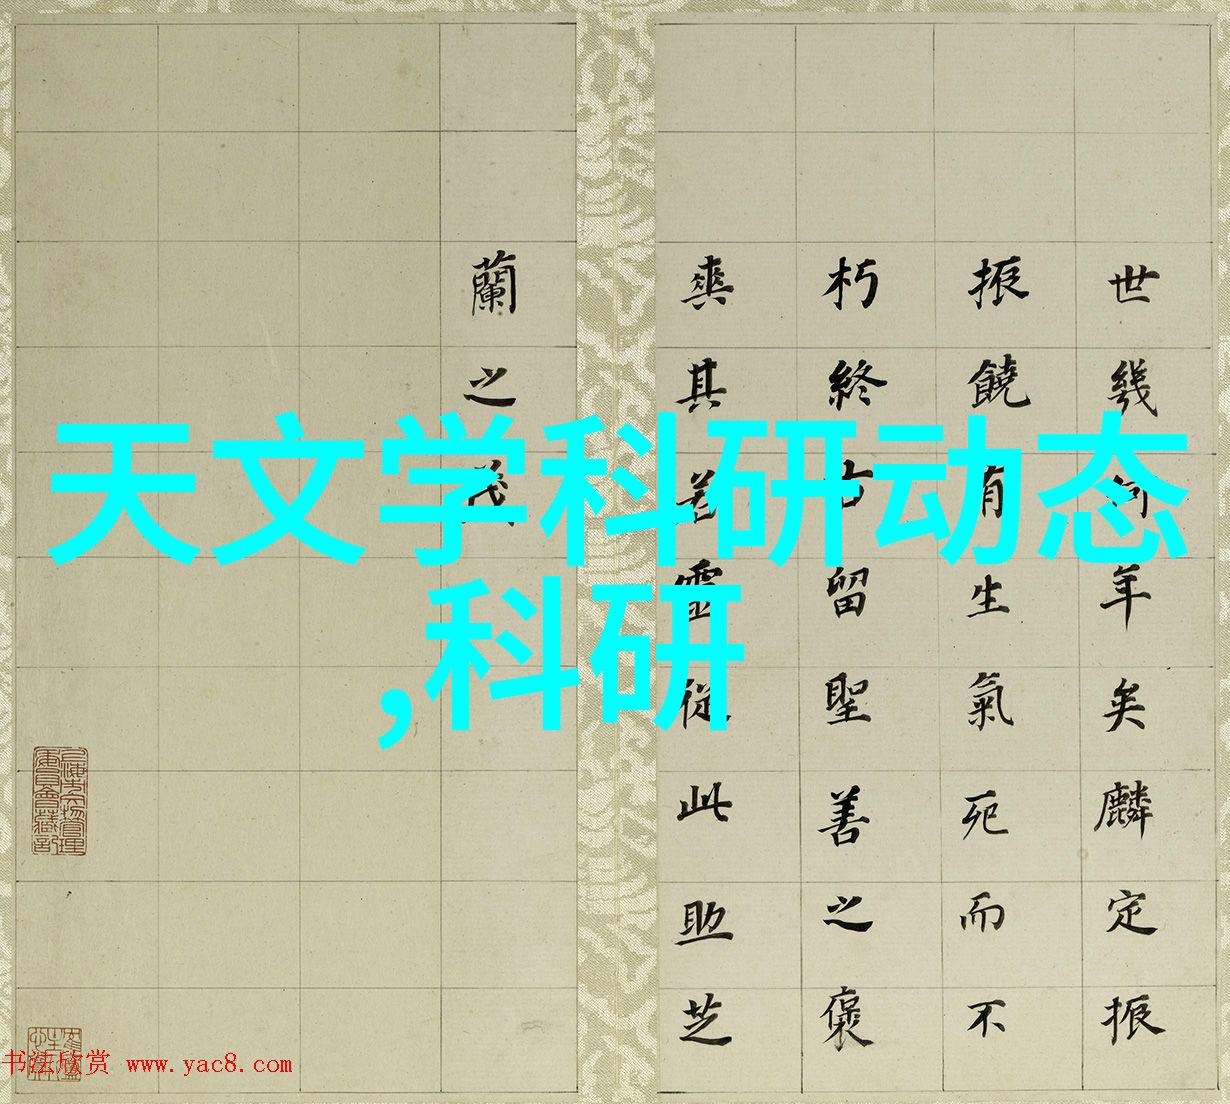 天文学科研动态
,科研
世幾何年矣麟定振
振饒有生氣死而不
朽終古留聖善之褒
爽其若靈從此助芝
蘭之茂
书法欣赏 www.yac8.com